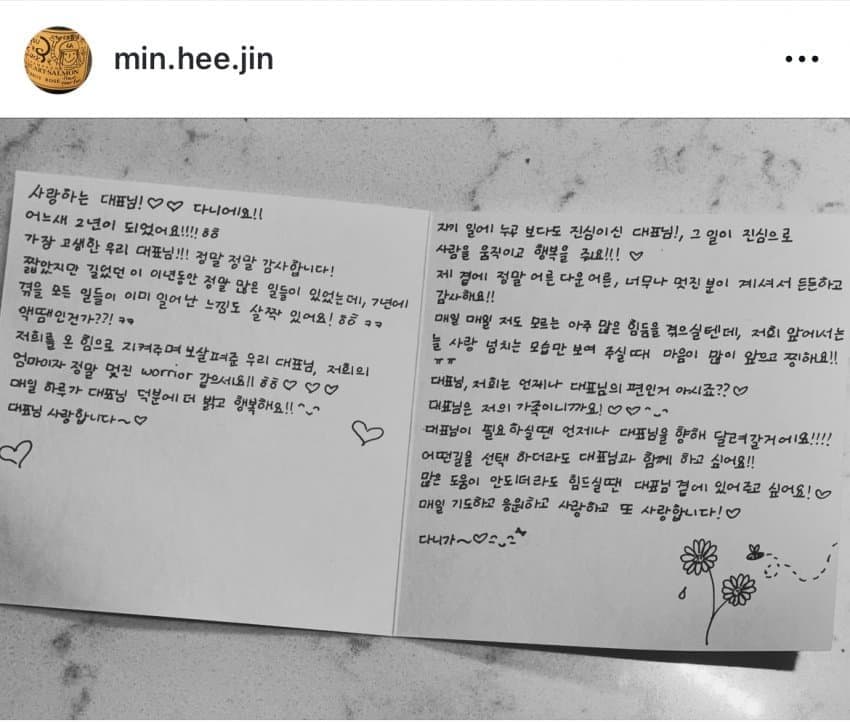 min.hee.jin
사랑하는 대표님!♡♡ 다니에요!!
어느새 2년이 되었어요!!!! ㅎㅎ
가장 고생한 우리 대표님!!! 정말 정말 감사합니다!
짧았지만 길었던 이 이년동안 정말 많은 일들이 있었는데, 7년에
겪을 모든 일들이 이미 일어난 느낌도 살짝 있어요! ㅎㅎ ㅋㅋ
액땜인건가??! ㅋㅋ
저희를 온 힘으로 지켜주며 보살펴준 우리 대표님, 저희의
엄마이자 정말 멋진 worrior 같으세요!! ㅎㅎ♡ ♡ ♡
매일 하루가 대표님 덕분에 더 밝고 행복해요!! ^_^
대표님 사랑합니다~♡
자기 일에 누구 보다도 진심이신 대표님!, 그 일이 진심으로
사람을 움직이고 행복을 줘요!!! ♡
제 곁에 정말 어른 다운 어른, 너무나 멋진 분이 계셔서 든든하고
감사해요!!
매일 매일 저도 모르는 아주 많은 힘듦을 겪으실텐데, 저희 앞에서는
늘 사랑 넘치는 모습만 보여 주실때 마음이 많이 앞으고 찡해요!!
ㅠㅠ
대표님, 저희는 언제나 대표님의 편인거 아시죠??♡
대표님은 저의 가족이니까요! ♡♡ ^_^
대표님이 필요하실땐 언제나 대표님을 향해 달려갈거에요!!!!
어떤길을 선택 하더라도 대표님과 함께 하고 싶어요!!
많은 도움이 안되더라도 힘드실땐 대표님 곁에 있어주고 싶어요!♡
매일 기도하고 응원하고 사랑하고 또 사랑합니다!♡
다니가~♡